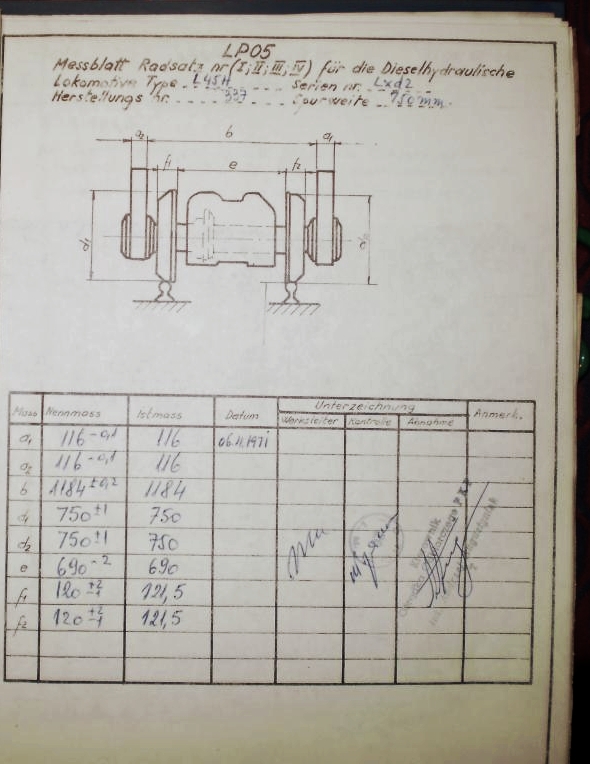 LP05
Messblatt Radsatz nr (I; II; III; IV) für die Dieselhydraulische
Lokomotive Type L45H Serien nr. Lxd2
Herstellungs nr. 337 Spurweite 750 mm.
a₂ b a₁
f₁ e f₂
d₁ d₂
Mass Nennmass Istmass Datum Unterzeichnung Anmerk.
Werksleiter Kontrolle Abnahme
a₁ 116 -0,1 116 06.11.1971
a₂ 116 -0,1 116
b 1184 ±0,2 1184
d₁ 750 ±1 750
d₂ 750 ±1 750
e 690 -2 690
f₁ 120 +2 -1 121,5
f₂ 120 +2 -1 121,5